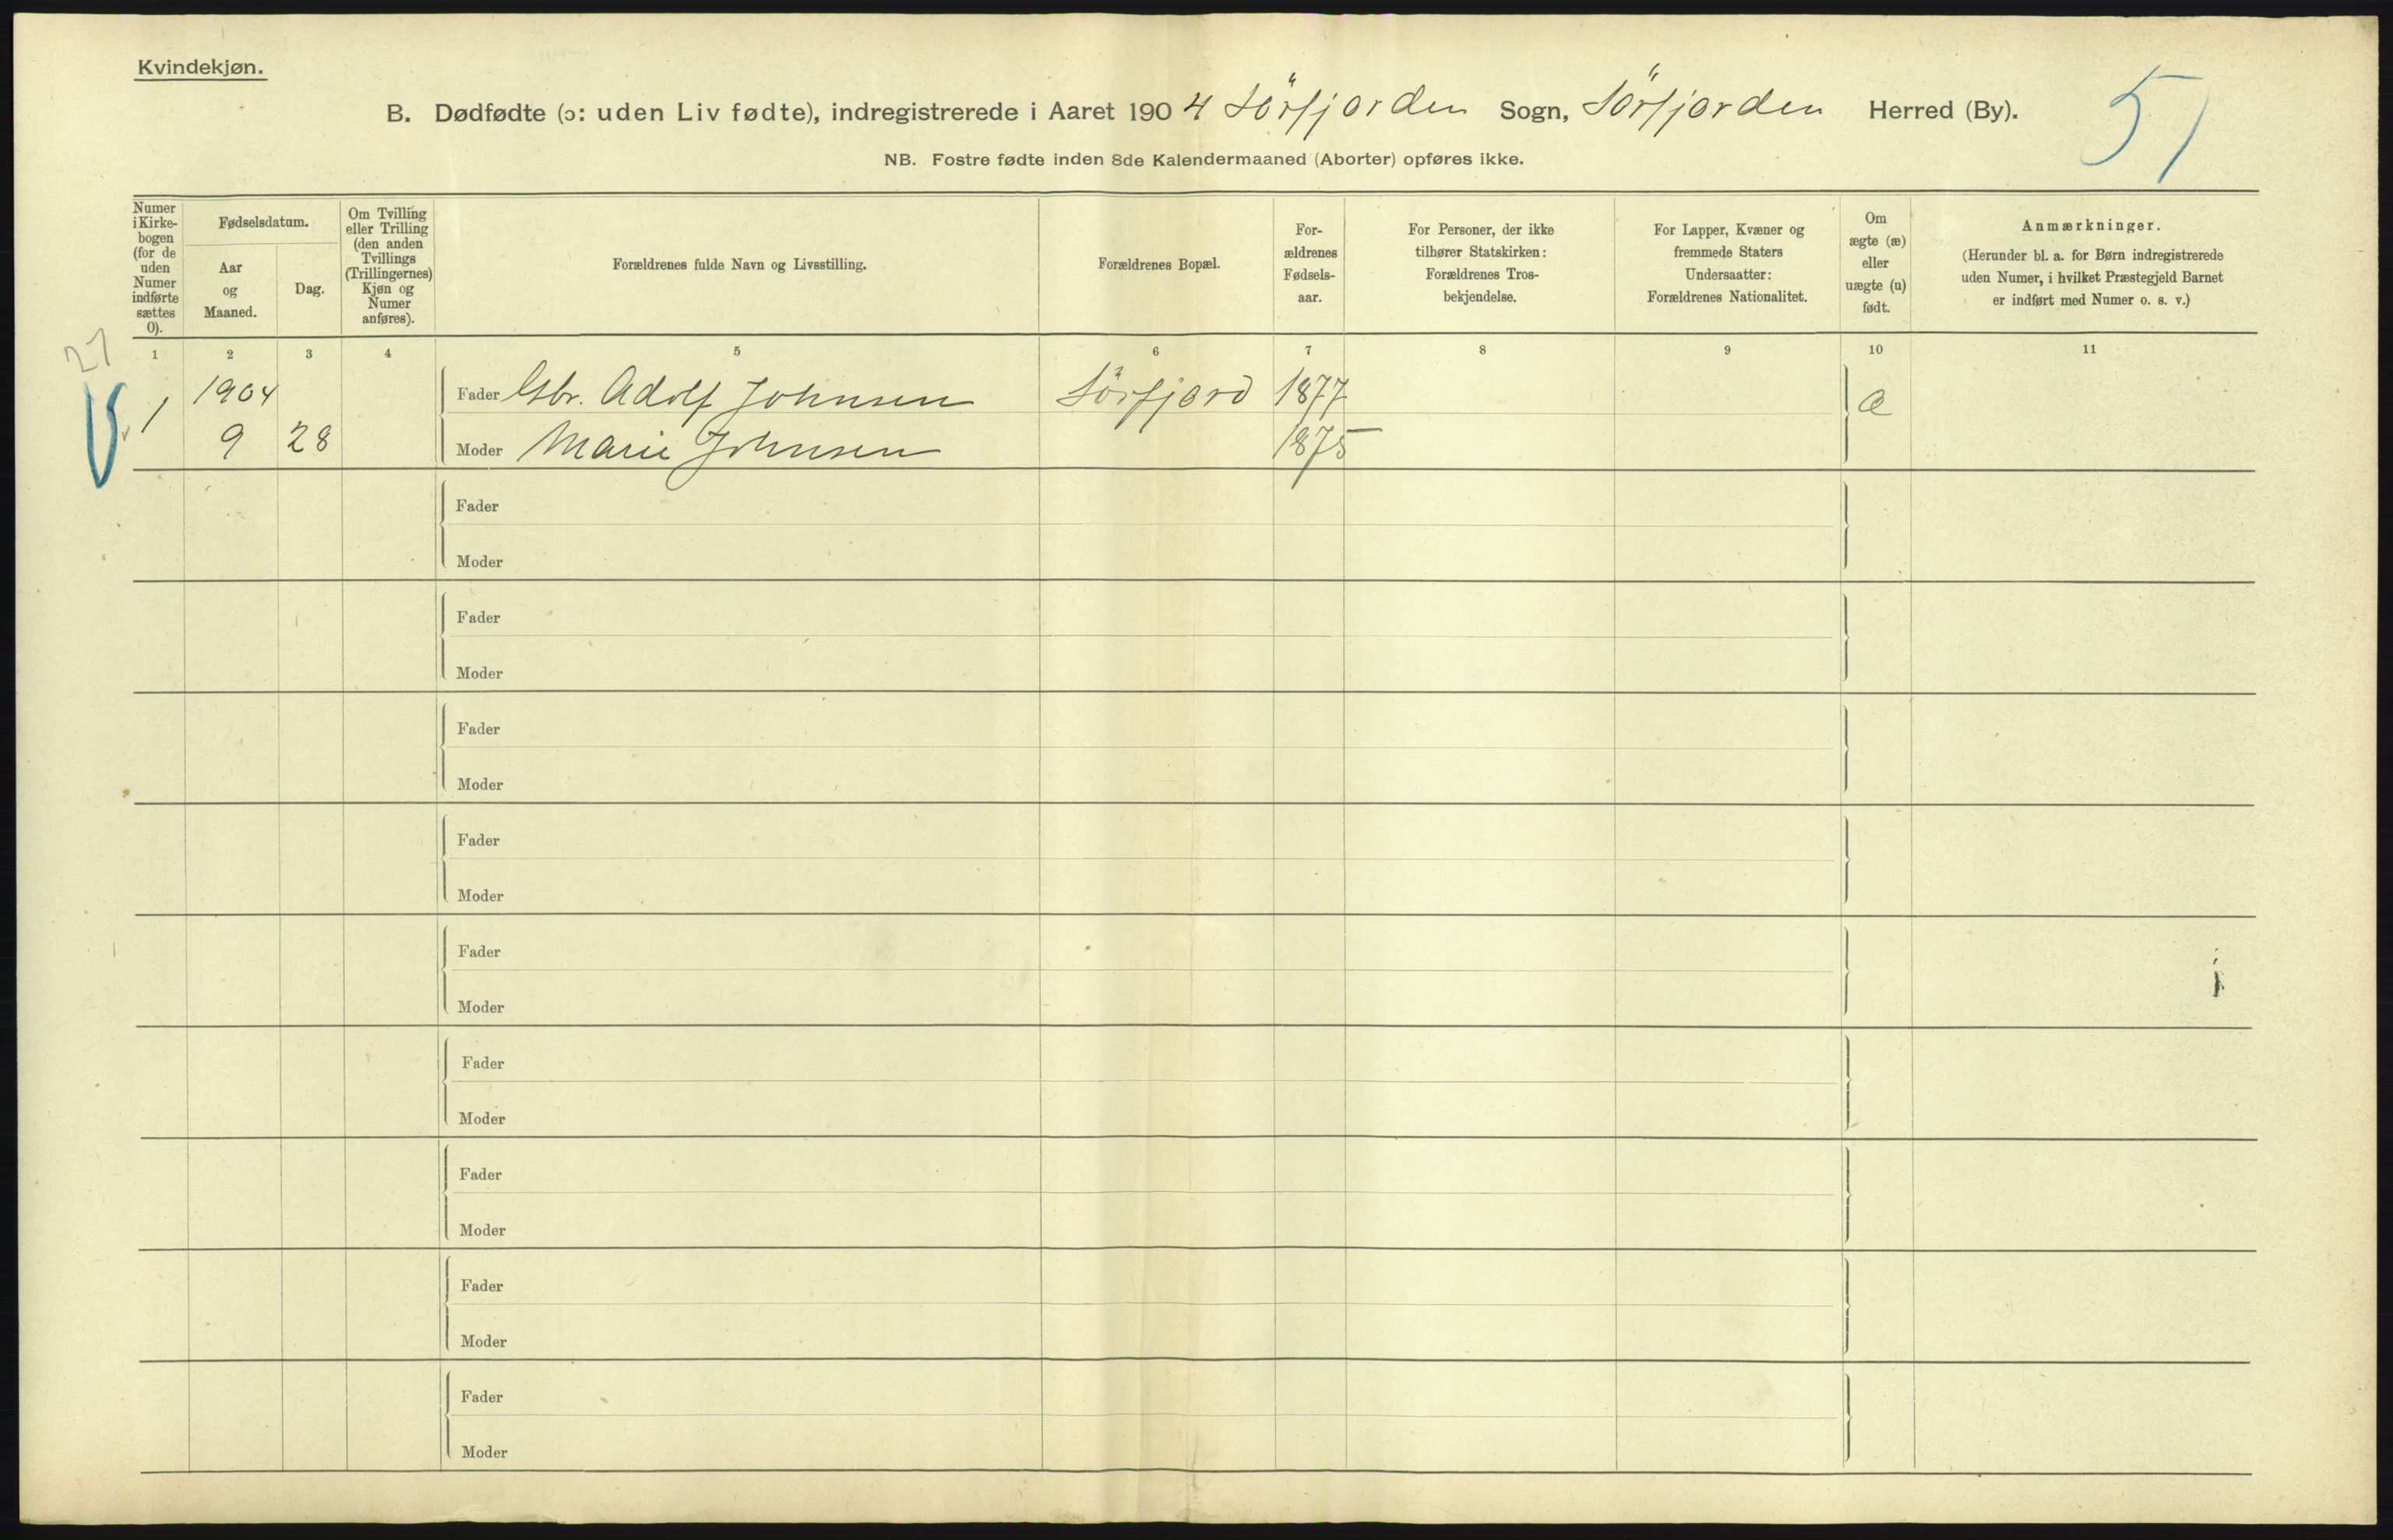 Kvindekjøn.
B. Dødfødte (ɔ: uden Liv fødte), indregistrerede i Aaret 1904 Sörfjorden Sogn, Sörfjorden Herred (By).
51
NB. Fostre fødte inden 8de Kalendermaaned (Aborter) opføres ikke.
Numer i Kirke- bogen (for de uden Numer indførte sættes 0).
Fødselsdatum.
Aar og Maaned.
Dag.
Om Tvilling eller Trilling (den anden Tvillings (Trillingernes) Kjøn og Numer anføres).
Forældrenes fulde Navn og Livsstilling.
Forældrenes Bopæl.
For- ældrenes Fødsels- aar.
For Personer, der ikke tilhører Statskirken: Forældrenes Tros- bekjendelse.
For Lapper, Kvæner og fremmede Staters Undersaatter: Forældrenes Nationalitet.
Om ægte (æ) eller uægte (u) født.
Anmærkninger.
(Herunder bl. a. for Børn indregistrerede uden Numer, i hvilket Præstegjeld Barnet er indført med Numer o. s. v.)
1 2 3 4 5 6 7 8 9 10 11
27
1904 Fader Gbr. Adolf Johnsen Sörfjord 1877 æ
1 9 28 Moder Marie Johnsen 1875
Fader
Moder
Fader
Moder
Fader
Moder
Fader
Moder
Fader
Moder
Fader
Moder
Fader
Moder
Fader
Moder
Fader
Moder